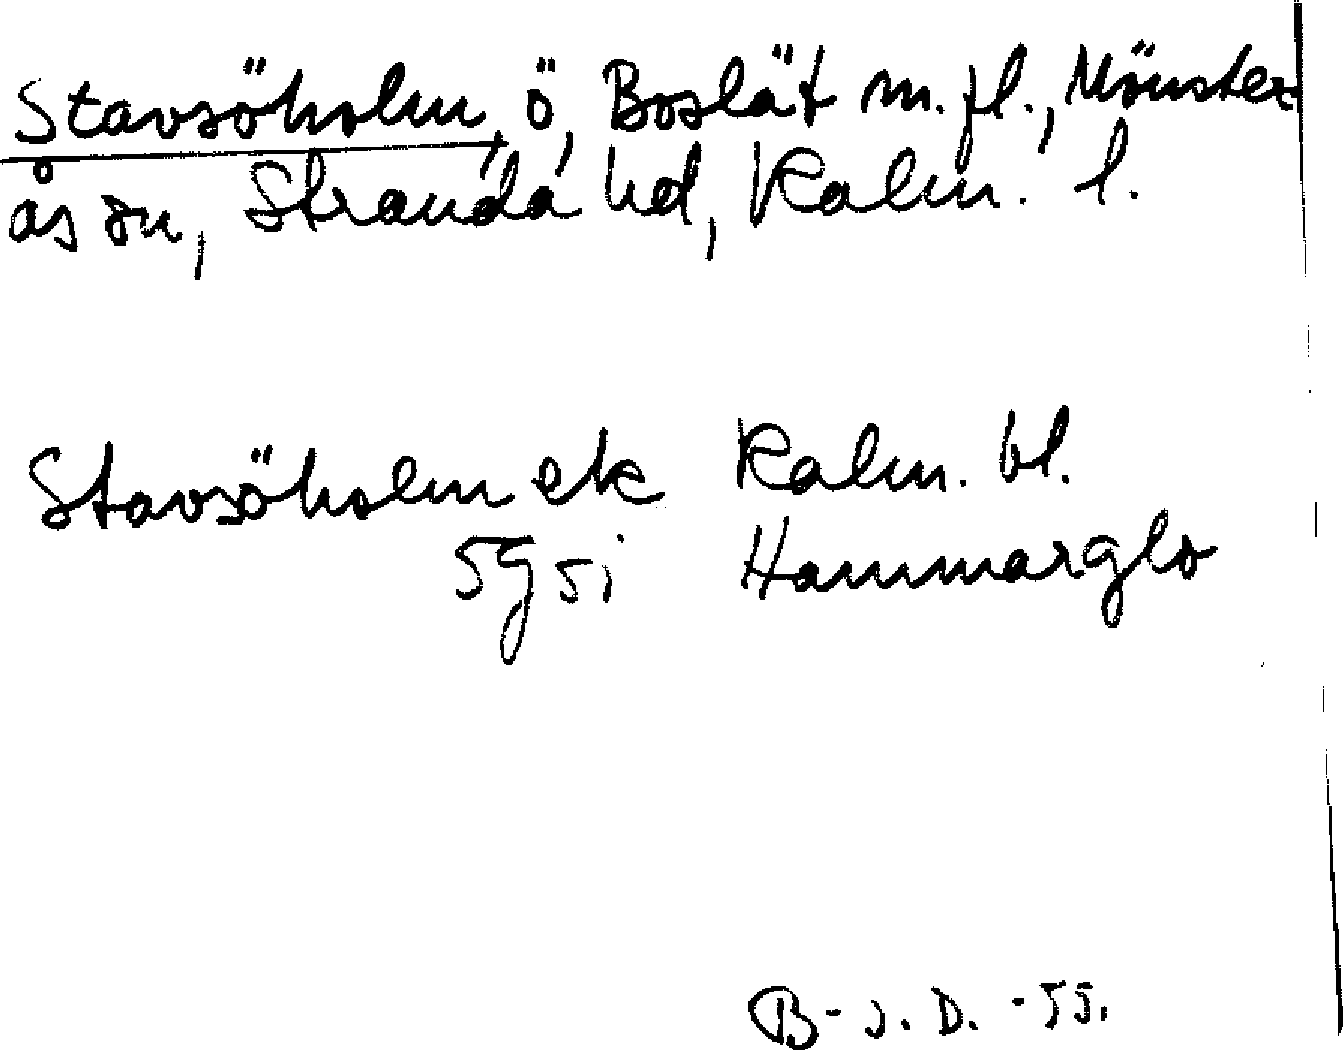 Stavsöholm, ö, Boslät m.fl., Mönster
ås sn, Stranda hd, Kalm. l.
Stavsöholm ek Kalm. bl.
5g5i Hammarglo
B-J.D. -55.